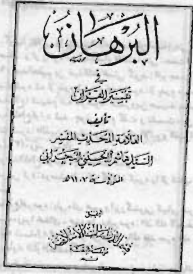 البرهان
في
تفسير القرآن
تأليف
العلامة المحدث المفسر
السيد هاشم الحسيني البحراني
المتوفى سنة ١١٠٧ هـ